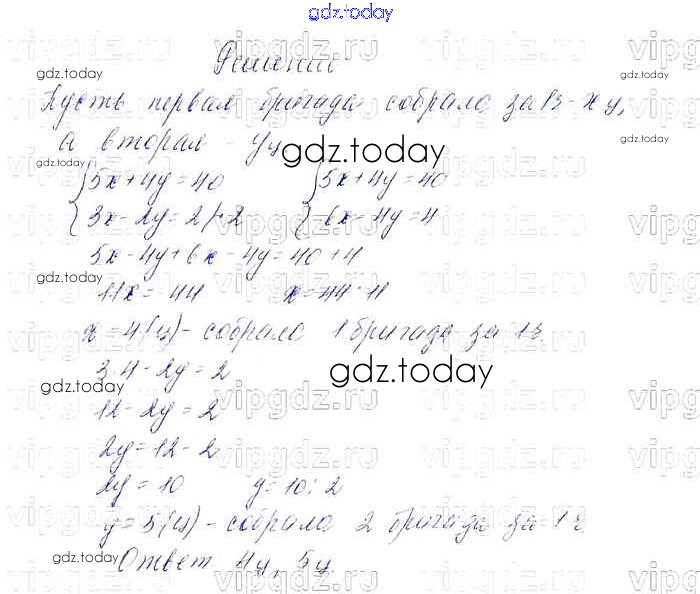 gdz.today
Решении
Пусть первая бригада собрала за 1 з - x ц,
а вторая - y ц
gdz.today
5x + 4y = 40
5x + 4y = 40
3x - 2y = 2 | · 2
6x - 4y = 4
5x - 4y + 6x - 4y = 40 + 4
11x = 44
x = 44 : 11
x = 4 (ц) - собрала 1 бригада за 1 ч.
3 · 4 - 2y = 2
gdz.today
12 - 2y = 2
2y = 12 - 2
2y = 10
y = 10 : 2
y = 5 (ц) - собрала 2 бригада за 1 ч.
Ответ 4ц, 5ц.
gdz.today
gdz.today
gdz.today
gdz.today
gdz.today
gdz.today
vipgdz.ru